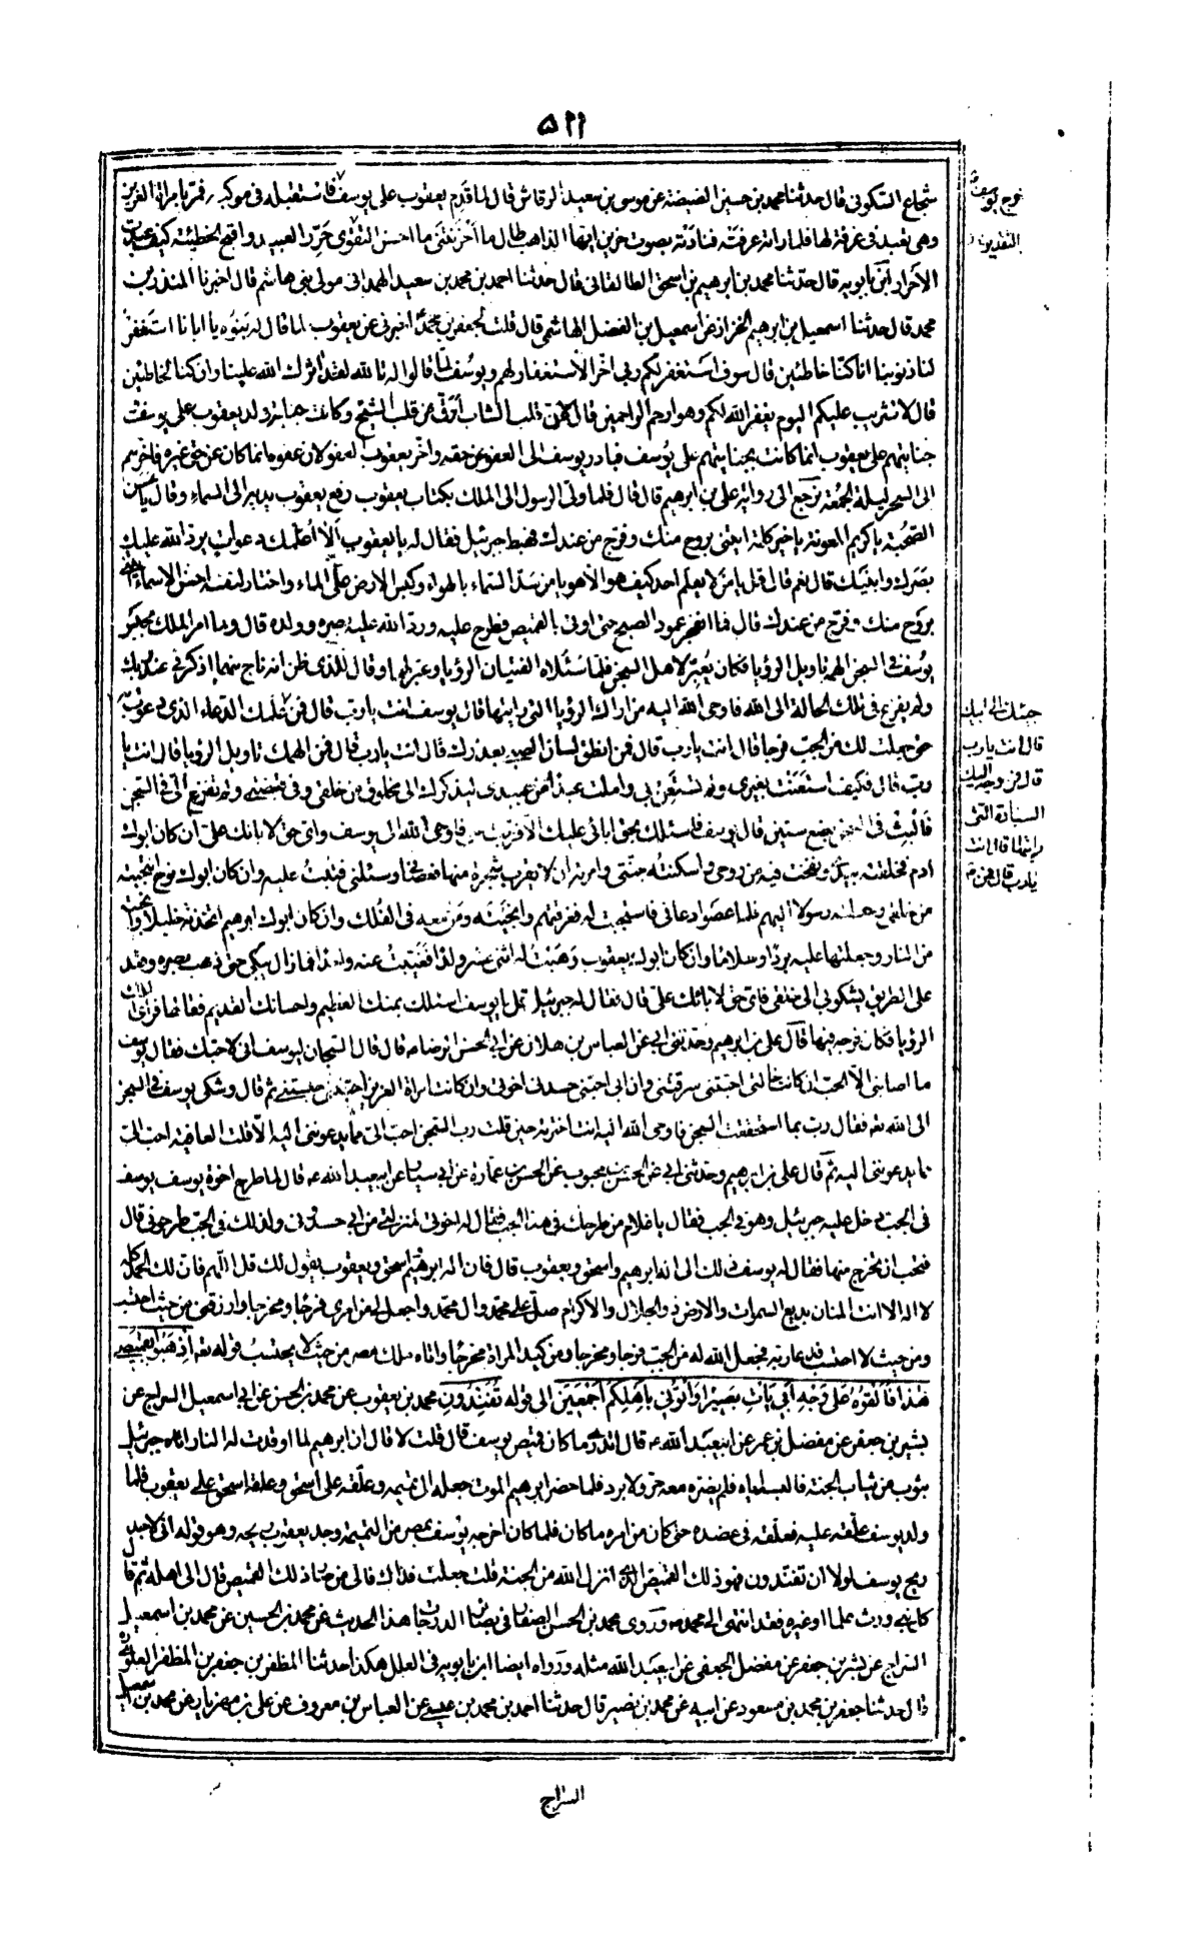 ٥١١
شجاع السكونى قال حدثنا محمد بن حسين الضيضة عن موسى بن سعيد الرقاش قال لما قدم يعقوب على يوسف فاستقبله فى موكبه فمر بامراة العزيز
وهى تعبد فى غرفة لها فلما راته عرفته فنادته بصوت حزين ايها الذاهب طال ما احزنتنى ما احسن التقوى حرر العبيد واقبح الخطيئة كيف عبدت
الاحرار ابن بابويه قال حدثنا محمد بن ابرهيم بن اسحق الطالقانى قال حدثنا احمد بن محمد بن سعيد الهمدانى مولى بنى هاشم قال اخبرنا المنذر بن
محمد قال حدثنا اسمعيل بن ابرهيم الخزاز عن اسمعيل بن الفضل الهاشمى قال قلت لجعفر بن محمد اخبرنى عن يعقوب لما قال له بنوه يا ابانا استغفر
لنا ذنوبنا انا كنا خاطئين قال سوف استغفر لكم ربى اخر الاستغفار لهم ويوسف لما قالوا له تالله لقد اثرك الله علينا وان كنا لخاطئين
قال لا تثريب عليكم اليوم يغفر الله لكم وهو ارحم الراحمين قال لان قلب الشاب ارق من قلب الشيخ وكانت جناية ولد يعقوب على يوسف
جنايتهم على يعقوب انما كانت بجنايتهم على يوسف فبادر يوسف الى العفو عن حقه واخر يعقوب العفو لان عفوه انما كان عن حق غيره فاخرهم
الى السحر ليلة الجمعة نرجع الى رواية على بن ابرهيم قال قال فلما ولى الرسول الى الملك بكتاب يعقوب رفع يعقوب يديه الى السماء وقال يا حسن
الصحبة يا كريم المعونة يا خير كلمة ايتنى بروح منك وفرج من عندك فهبط جبرئيل فقال له يا يعقوب الا اعلمك دعوات يرد الله عليك
بصرك وابنيك قال نعم قال قل يا من لا يعلم احد كيف هو الا هو يا من سد السماء بالهواء وكبس الارض على الماء واختار لنفسه احسن الاسماء ائتنى
بروح منك وفرج من عندك قال فما انفجر عمود الصبح حتى اوتى بالقميص فطرح عليه ورد الله عليه بصره وولده قال ولما امر الملك بحبس
يوسف فى السجن الهمه تاويل الرؤيا فكان يعبر لاهل السجن فلما سئلاه الفتيان الرؤيا وعبر لهما وقال للذى ظن انه ناج منهما اذكرنى عند ربك
ولم يفزع فى تلك الحالة الى الله فاوحى الله اليه من اراك الرؤيا التى رايتها قال يوسف انت يا رب قال فمن علمك الدعاء الذى دعوت به
حتى جعلت لك من الجب فرجا قال انت يا رب قال فمن انطق لسان الصبى بعذرك قال انت يا رب قال فمن الهمك تاويل الرؤيا قال انت يا
رب قال فكيف استعنت بغيرى ولم تستعن بى واملت عبدا من عبيدى ليذكرك الى مخلوق من خلقى وفى قبضتى ولم تفزع الى فى السجن
فالبث فى السجن بضع سنين قال يوسف فاسئلك بحق ابائى عليك الا فرجت عنى فاوحى الله الى يوسف واى حق لابائك على ان كان ابوك
ادم فخلقته بيدى ونفخت فيه من روحى واسكنته جنتى وامرته ان لا يقرب شجرة منها فعصانى وسئلنى فتبت عليه وان كان ابوك نوح انتجبته
من خلقى وجعلته رسولا اليهم فلما عصوا دعانى فاستجبت له فغرقتهم وانجيته ومن معه فى الفلك وان كان ابوك ابرهيم اتخذته خليلا وانجيته
من النار وجعلتها عليه بردا وسلاما وان كان ابوك يعقوب وهبت له اثنى عشر ولدا فغيبت عنه ولدا فما زال يبكى حتى ذهب بصره وقعد
على الطريق يشكونى الى خلقى فاى حق لابائك على قال فقال له جبرئيل قل يا يوسف اسئلك بمنك العظيم واحسانك القديم فقالها فراى الملك
الرؤيا فكان فرجه فيها قال على بن ابرهيم وحدثنى ابى عن العباس بن هلال عن ابى الحسن الرضا ع قال قال السجان ليوسف انى لاحبك فقال يوسف
ما اصابنى الا الحب ان كانت خالتى احبتنى سرقتنى وان ابى احبنى حسدنى اخوتى وان كانت امراة العزيز احبتنى حبستنى ثم قال وشكى يوسف فى السجن
الى الله تع فقال رب بما استحققت السجن فاوحى الله اليه انت اخترته حين قلت رب السجن احب الى مما يدعوننى اليه الا قلت العافية احب الى
مما يدعوننى اليه ثم قال على بن ابرهيم وحدثنى ابى عن الحسن بن محبوب عن الحسن بن عمارة عن ابى سيار عن ابيعبد الله ع قال لما طرح اخوة يوسف يوسف
فى الجب دخل عليه جبرئيل وهو فى الجب فقال يا غلام من طرحك فى هذا الجب فقال له اخوتى لمنزلتى من ابى حسدونى ولذلك فى الجب طرحونى قال
فتحب ان تخرج منها فقال له يوسف ذلك الى اله ابرهيم واسحق ويعقوب قال فان اله ابرهيم واسحق ويعقوب يقول لك قل اللهم فان لك الحمد كله
لا اله الا انت المنان بديع السموات والارض ذو الجلال والاكرام صل على محمد وال محمد واجعل لى من امرى فرجا ومخرجا وارزقنى من حيث احتسب
ومن حيث لا احتسب فدعا ربه فجعل الله له من الجب فرجا ومخرجا ومن كيد المراة مخرجا واتاه ملك مصر من حيث لا يحتسب قوله تعه اذهبوا بقميصى
هذا فالقوه على وجه ابى يات بصيرا واتونى باهلكم اجمعين الى قوله تفندون محمد بن يعقوب عن محمد بن الحسن عن ابى اسمعيل السراج عن
بشير بن جعفر عن مفضل بن عمر عن ابيعبد الله ع قال اتدرى ما كان قميص يوسف قال قلت لا قال ان ابرهيم لما اوقدت له النار اتاه جبرئيل
بثوب من ثياب الجنة فالبسه اياه فلم يضره معه حر ولا برد فلما حضر ابرهيم الموت جعله فى تميمه وعلقه على اسحق وعلقه اسحق على يعقوب فلما
ولد يوسف علقه عليه فعلقه فى عضده حتى كان من امره ما كان فلما كان اخرجه يوسف بمصر من التميمة وجد يعقوب ريحه وهو قوله انى لاجد
ريح يوسف لولا ان تفندون فهو ذلك القميص الذى انزل الله من الجنة قلت جعلت فداك فالى من صار ذلك القميص قال الى اهله ثم قال
كل نبى ورث علما او غيره فقد انتهى الى محمد ص وروى محمد بن الحسن الصفار فى بصائر الدرجات هذا الحديث عن محمد بن الحسين عن محمد بن اسمعيل
السراج عن بشر بن جعفر عن مفضل الجعفى عن ابيعبد الله مثله ورواه ايضا ابن بابويه فى العلل هكذا حدثنا المظفر بن جعفر بن المظفر العلوى
قال حدثنا جعفر بن محمد بن مسعود عن ابيه عن محمد بن نصير قال حدثنا احمد بن محمد بن عيسى عن العباس بن معروف عن على بن مهزيار عن محمد بن اسمعيل
السراج
خرج يوسف
حببك الى ابيك
قال انت يا رب
قال فمن وجه اليك
السيارة التى
رايتها قال انت
يا رب قال فمن